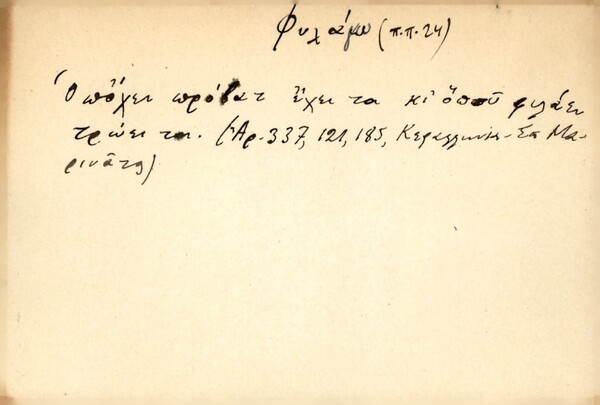 Φυλάγω (π.π. 24)
Ὁ πὄχει πρόβατ ἔχει τα κι ὅποῦ φυλάει
τρώει τα. (Ἀρ. 337, 121, 185, Κεφαλληνία - Σπ Μα-
ρινᾶτα)